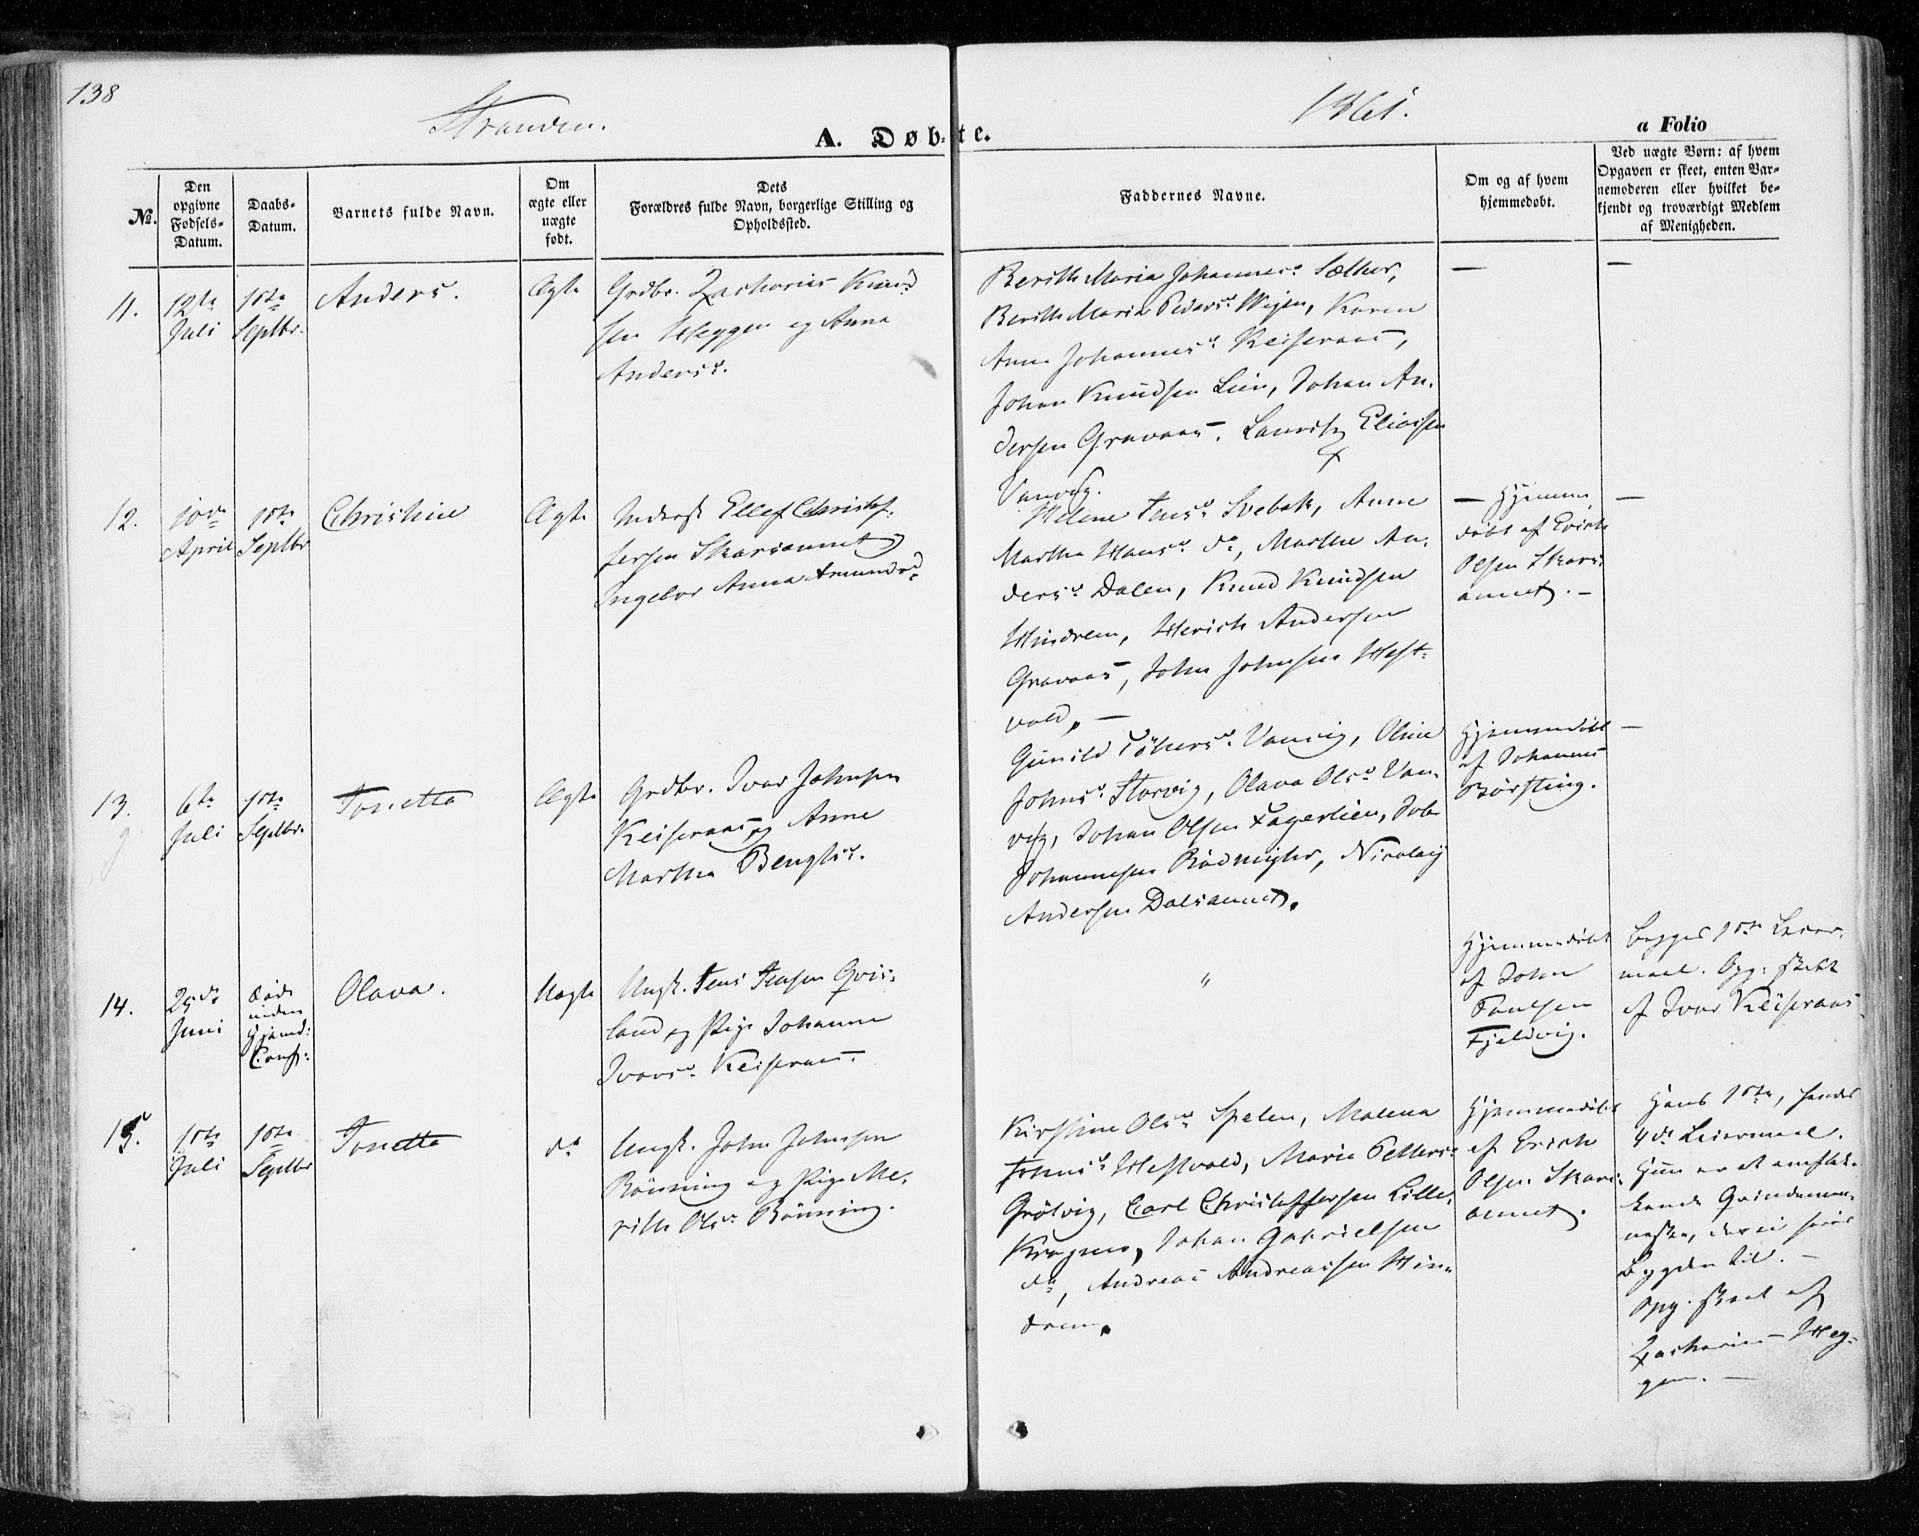 138
Stranden.
1861.
A. Døbte.
a Folio
No.
Den opgivne Fødsels-Datum.
Daabs-Datum.
Barnets fulde Navn.
Om ægte eller uægte født.
Dets Forældres fulde Navn, borgerlige Stilling og Opholdssted.
Faddernes Navne.
Om og af hvem hjemmedøbt.
Ved uægte Børn: af hvem Opgaven er skeet, enten Barnemoderen eller hvilket bekjendt og troværdigt Medlem af Menigheden.
11.
12te
Juli
1ste
Septbr.
Anders.
Ægte
Grdbr. Zacharias Knud
sen Heggen og Anna
Andersd.
Berith Maria Johannesd. Sæther,
Berith Maria Pedersd. Wejen, Karen
Anna Johannesd. Keiseraas,
Johan Knudsen Lien, Johan An-
dersen Gravaas. Lauritz Eliasen
Vanvig.
—
—
12.
10de
April
1ste
Septbr
Christine
Ægte
Inderst Ellef Christof-
fersen Skarsaunet og
Ingebor Anna Amundsd.
Helene Jensd. Svebak, Anne
Martha Hansd. do, Marthe An-
dersd. Dalen, Knud Knudsen
Hindrem, Henrich Andersen
Gravaas, John Johnsen Hest-
vold. —
— Hjemme
døbt af Erich
Olsen Skars-
aunet. —
—
13.
6te
Juli
1ste
Septbr.
Tonetta
Ægte
Grdbr. Ivar Johnsen
Keiseraas og Anne
Martha Bengtsd.
Gunild Tøhersd. Vanvig, Oline
Johnsd. Storvig, Olava Olsd. Van-
vig, Johan Olsen Fagerlien, Job
Johannesen Rødmyhr, Nicolay
Andersen Dalsaunet.
Hjemmedøbt
af Johannes
Børsting.
—
14.
25de
Juni
Død
inden
Hjemd:
Conf:
Olava.
Uægte
Ungk. Jens Jensen Qvis-
land og Pige Johanna
Ivarsd. Keiseraas.
"
Hjemmedøbt
af John
Paulsen
Fjeldvig.
begges 1ste Leier-
maal. Opg: skeet
af Ivar Keiseraas
15.
1ste
Juli
1ste
Septbr
Tonetta
do
Ungk. John Johnsen
Rønning og Pige Me-
rith Olsd. Rønning.
Kirstine Olsd. Spelen, Malena
Jonsd. Hestvold, Marie Pettersd.
Grøtvig, Carl Christoffersen Lille-
Kragmo, Johan Gabrielsen
do, Andreas Andreassen Hin-
drem.
Hjemmedøbt
af Erich
Olsen Skars-
aunet.
Hans 1ste, hendes
4de Leiermaal.
Hun er et omflak-
kende Qvindemen-
neske, der ei hører
Bygden til. —
Opg. skeet af
Zacharias Heg-
gen. —